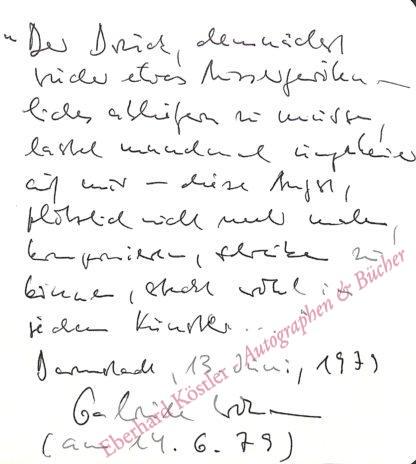 "Der Druck, demnächst
wieder etwas Aussergewöhn-
liches abliefern zu müssen,
lastet manchmal ungeheuer
auf mir – diese Angst,
plötzlich nicht mehr malen,
komponieren, schreiben zu
können, steckt wohl in
jedem Künstler...
Darmstadt, 13. Juni, 1979
Gabriele Wohmann
(am 14. 6. 79)
Eberhard Köstler Autographen & Bücher